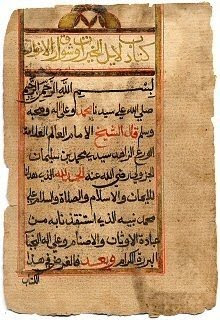 كتاب دلايل الخيرات وشوارق الانوار
بسم الله الرحمن الرحيم
صلى الله على سيدنا محمد وعلى اله وصحبه
وسلم قال الشيخ الامام العالم العلامة
الورع الزاهد سيدي محمد بن سليمان
الجزولي رضي الله عنه الحمد لله الذي هدانا
للايمان والاسلام والصلاة والسلام على
محمد نبيه الذي استنقذنا به من
عبادة الاوثان والاصنام وعلى اله النجباء
البررة الكرام وبعد فالغرض في هذا
الكتاب